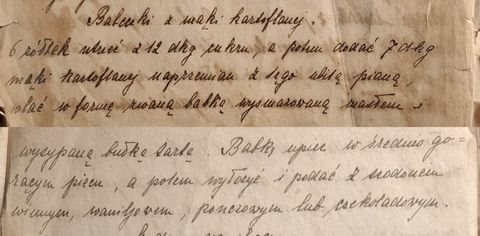 Babeczki z mąki kartoflanej.
6 żółtek utrzeć z 12 dkg cukru, a potem dodać 7 dkg
mąki kartoflanej naprzemian z tęgo ubitą pianą,
wlać w formę zwaną babką wysmarowaną masłem i
wysypaną bułką tartą. Babkę upiec w średnio go-
rącym piecu, a potem wyłożyć i podać z szodonem
winnym, waniljowem, ponczowym lub czekoladowym.